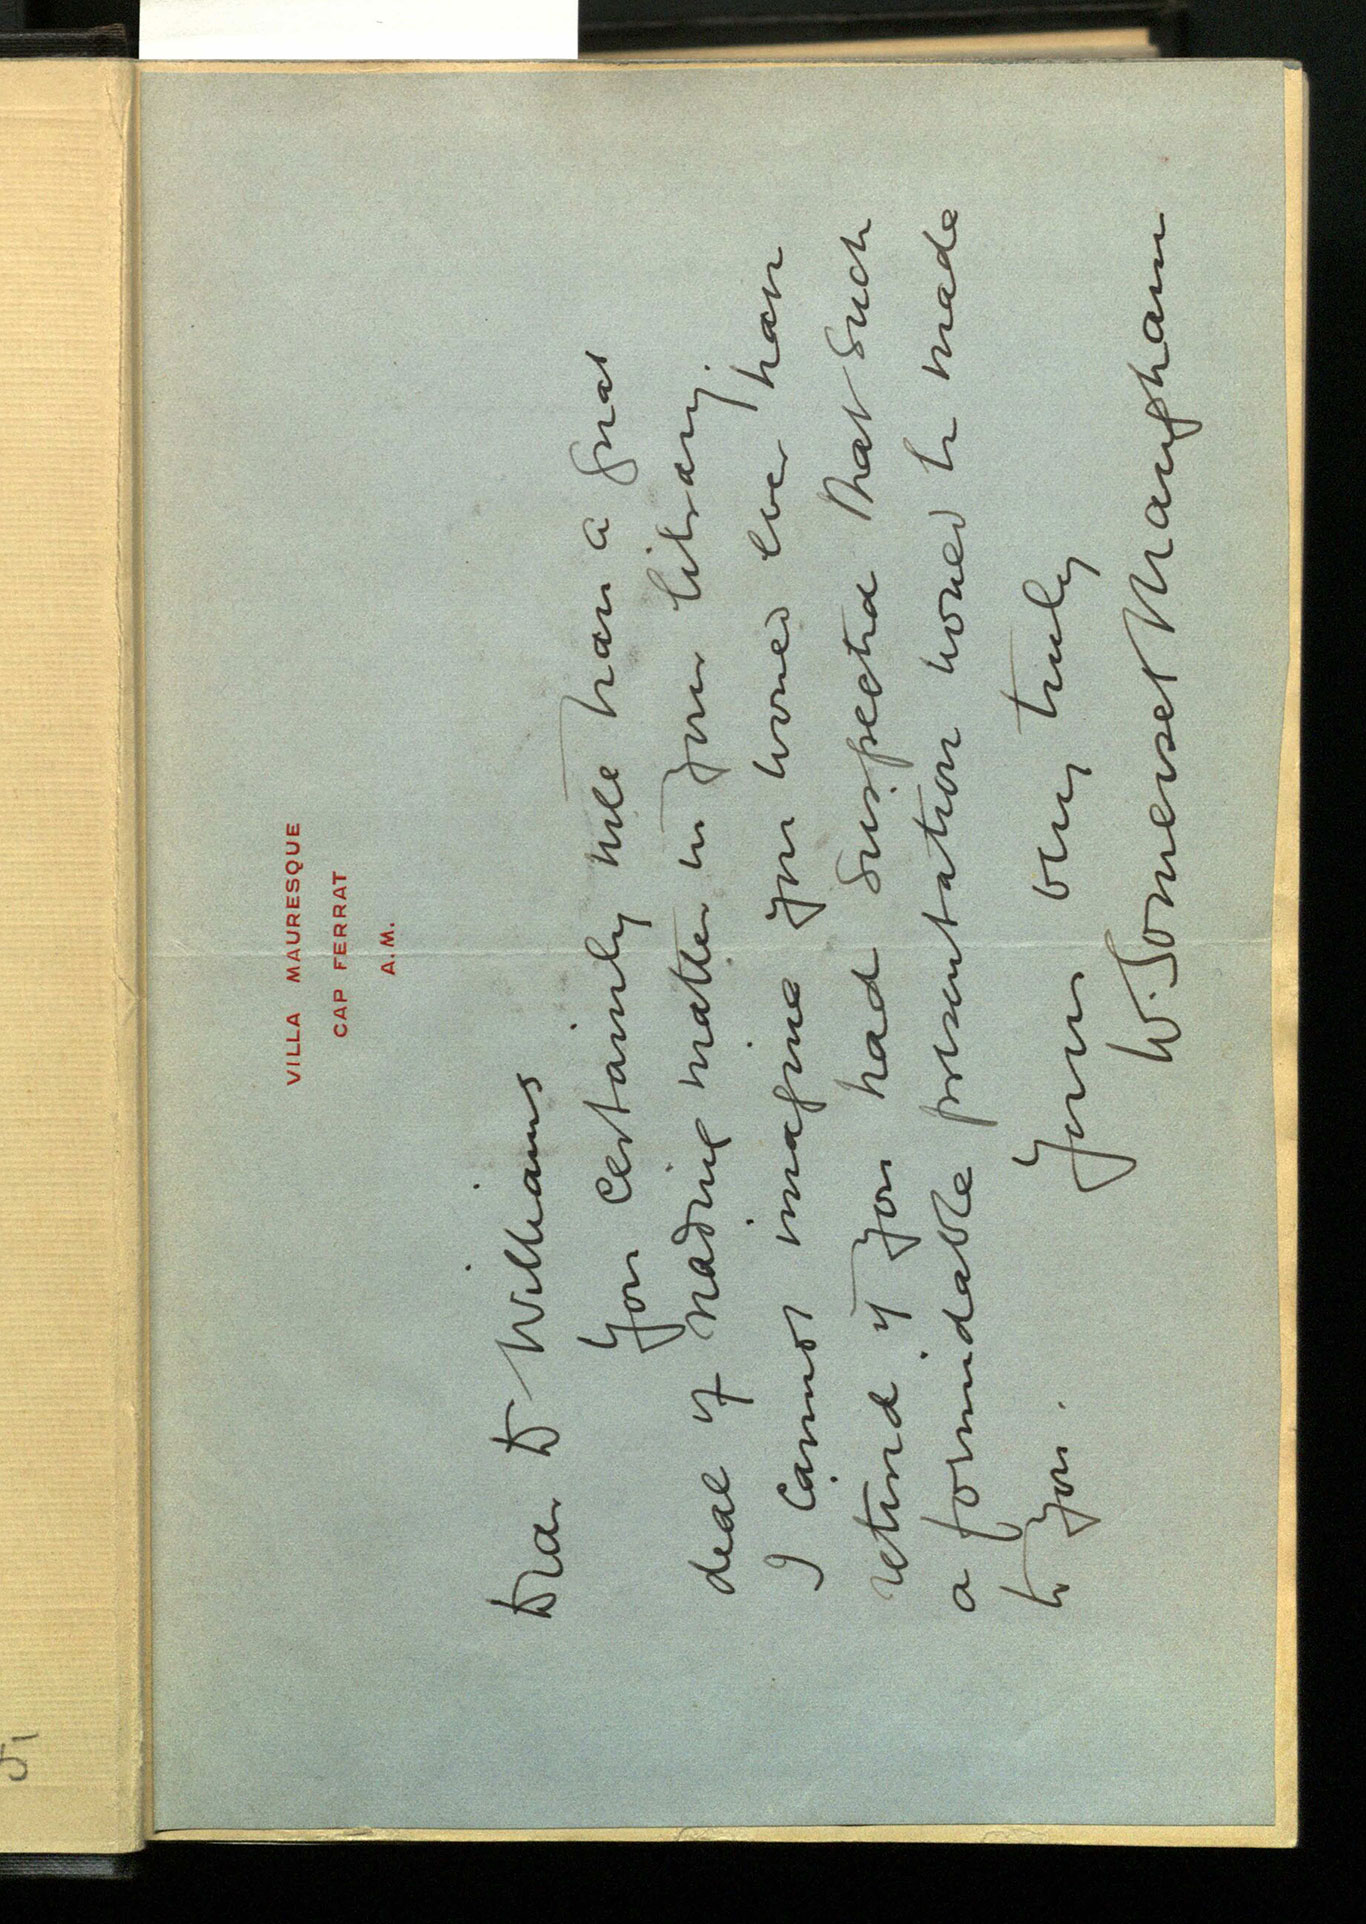 VILLA MAURESQUE
CAP FERRAT
A.M.
Dear Dr Williams
You certainly will have a great
deal of reading matter in your library.
I cannot imagine you would ever have
retired if you had suspected that such
a formidable presentation would be made
to you.
Yours very truly
W. Somerset Maugham